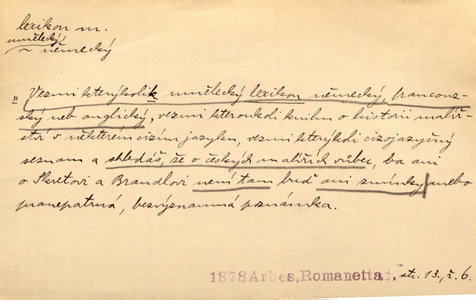 lexikon m.
umělecký
~ německý
„Vezmi kterýkolik umělecký lexikon německý, francouz-
ský neb anglický, vezmi kteroukoli knihu o historii malíř-
ství v některém cizím jazyku, vezmi kterýkoli cizojazyčný
seznam a shledáš, že o českých malířích vůbec, ba ani
o Škrétovi a Brandlovi není tam buď ani zmínky anebo
pranepatrná, bezvýznamná poznámka.
1878 Arbes, Romanetta I, str. 13, ř. 6.